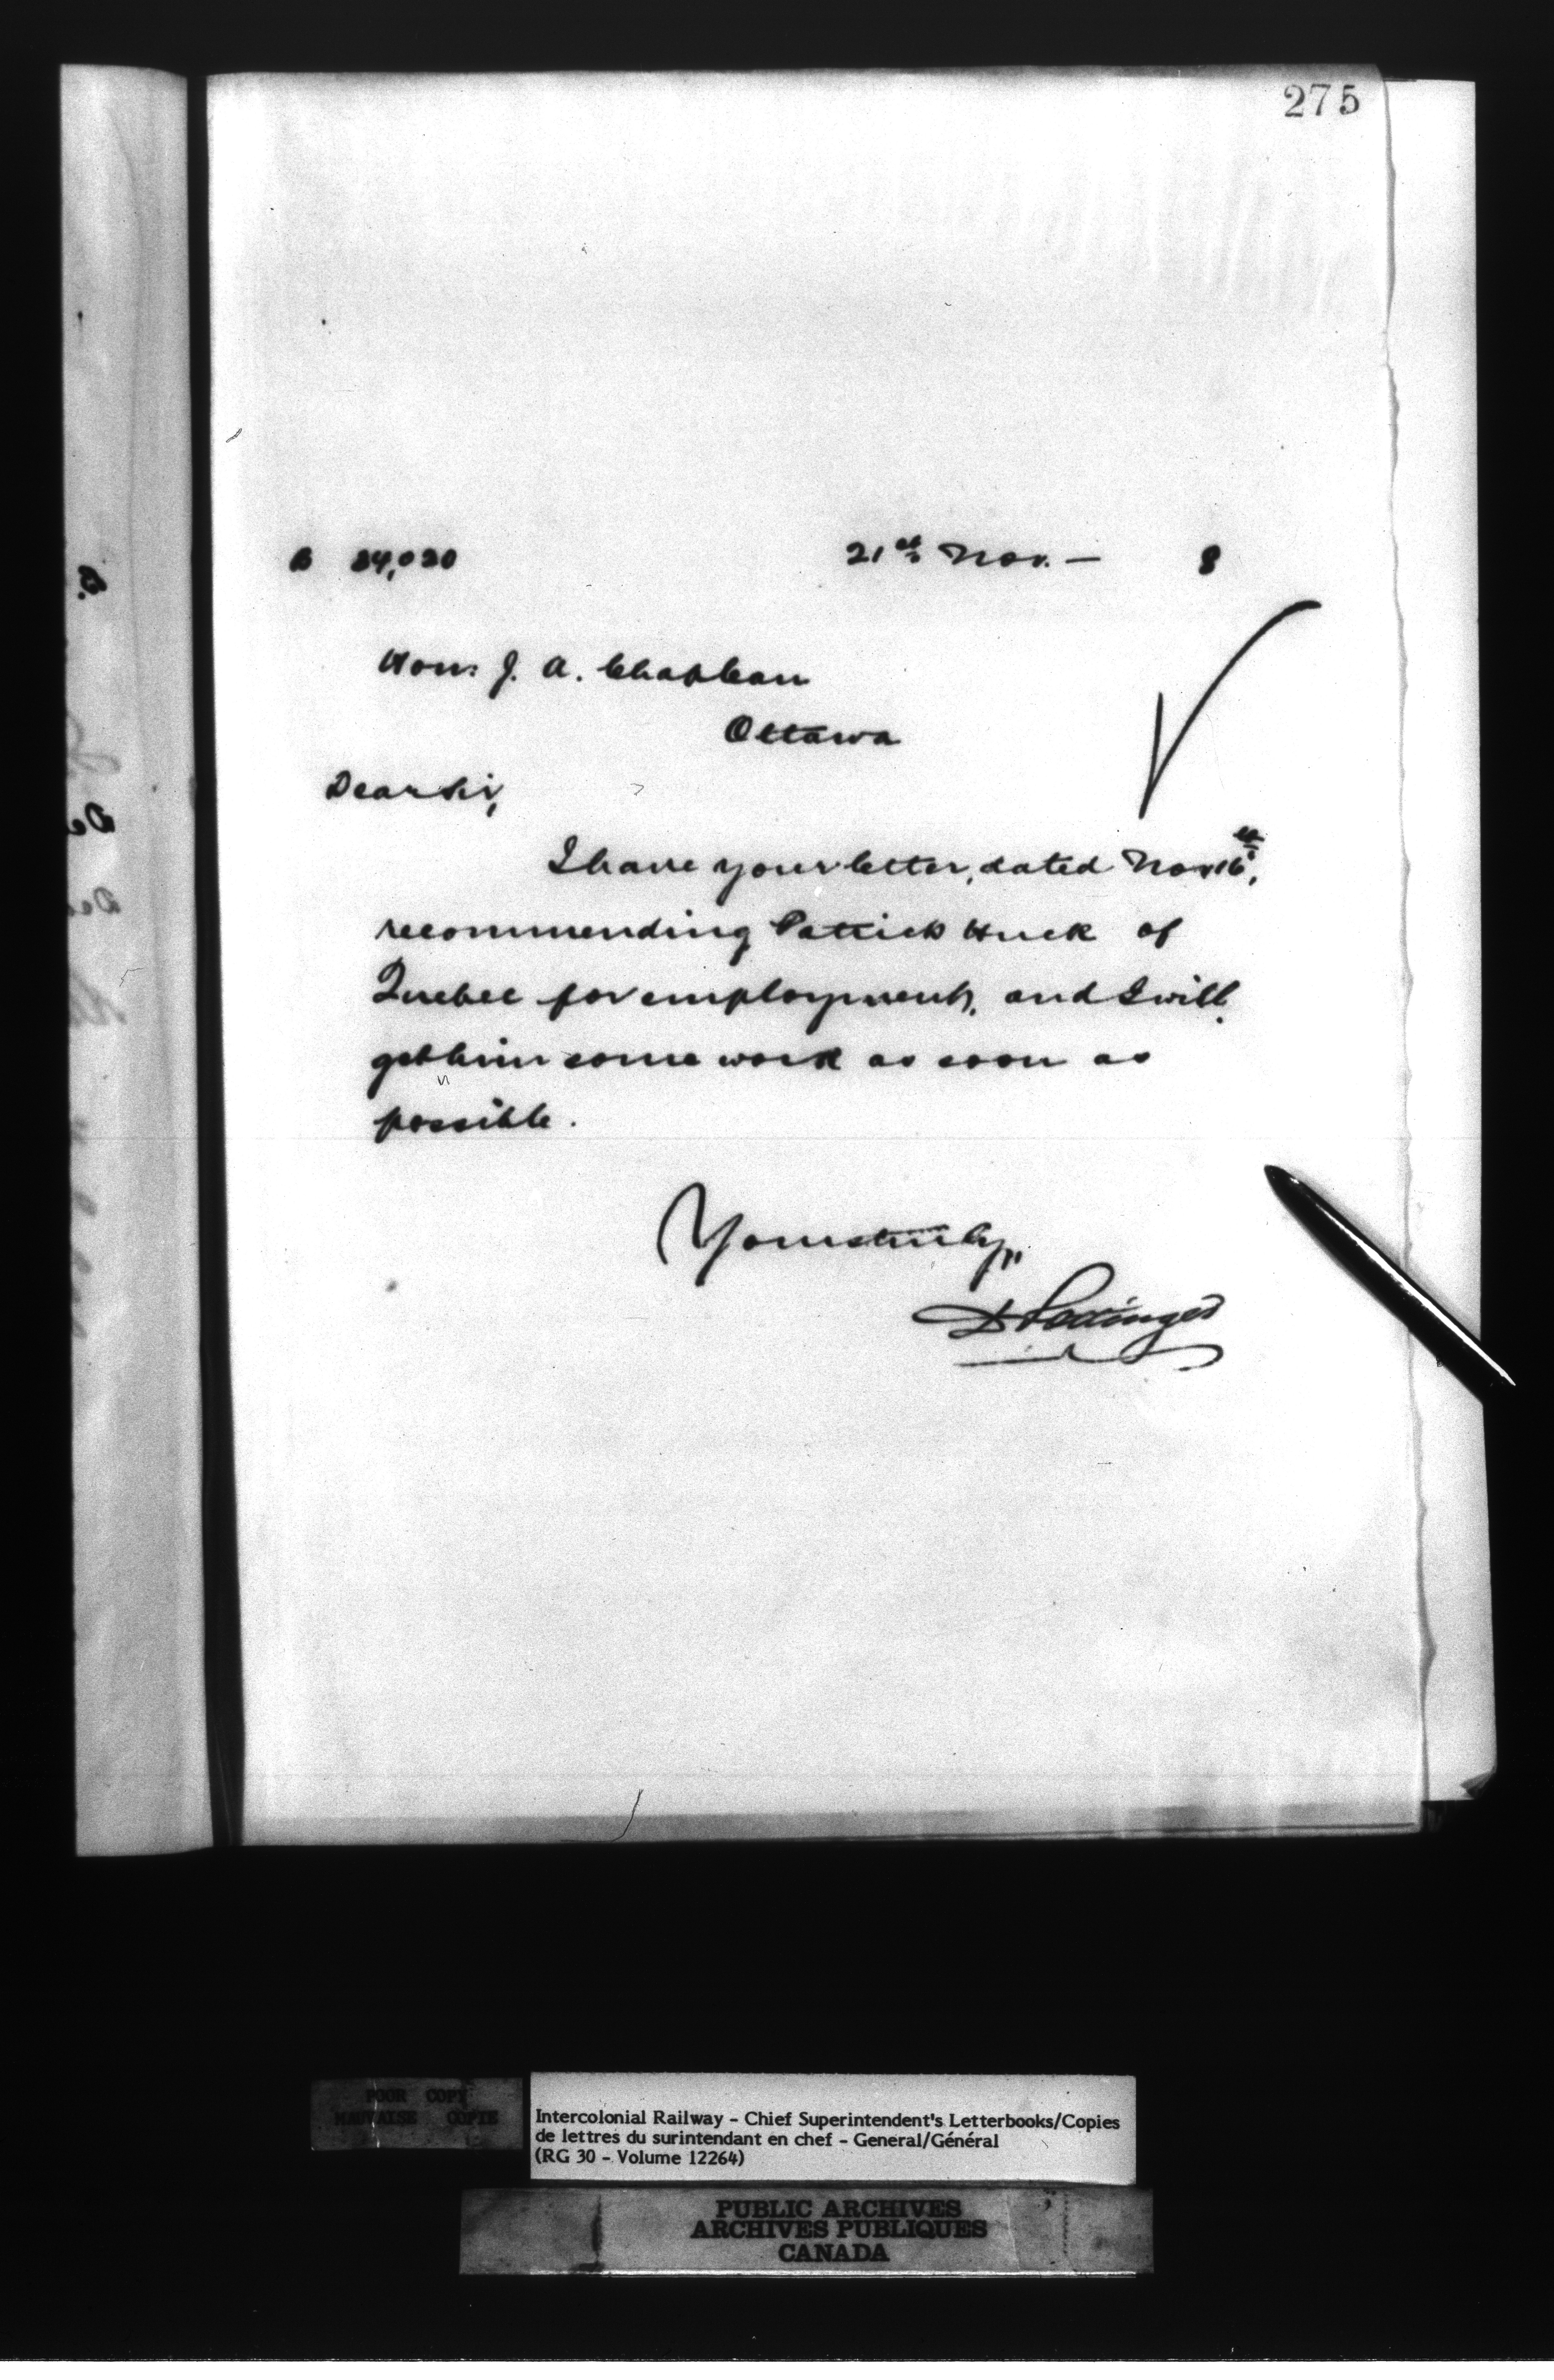 275
B 84,020 21st Nov. — 8
Hon: J. A. Chapleau
Ottawa
Dear Sir,
I have your letter, dated Nov 16th,
recommending Patrick Huck of
Quebec for employment, and I will
get him some work as soon as
possible.
Yours truly,
D Pottinger
POOR COPY
MAUVAISE COPIE
Intercolonial Railway - Chief Superintendent's Letterbooks/Copies
de lettres du surintendant en chef - General/Général
(RG 30 - Volume 12264)
PUBLIC ARCHIVES
ARCHIVES PUBLIQUES
CANADA